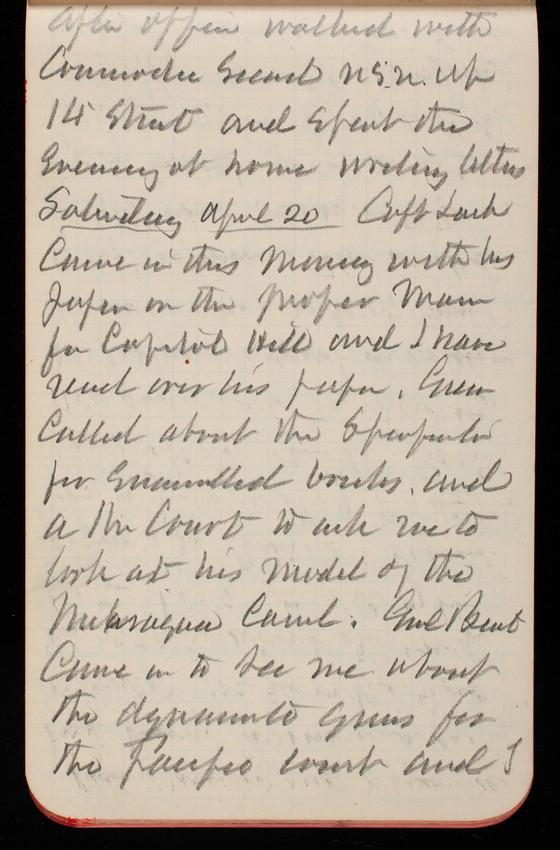 After office walked with
Commodore Sicard USN. up
14 Street and spent the
Evening at home writing letters
Saturday April 20 Capt Lusk
Came in this morning with his
paper on the proper Main
for Capitol Hill and I have
read over his paper. Green
Called about the Specifications
for Enamelled bricks. and
a Mr Court to ask me to
look at his model of the
Nicaragua Canal. Genl Benet
Came in to see me about
the dynamite guns for
the Pacific coast and I